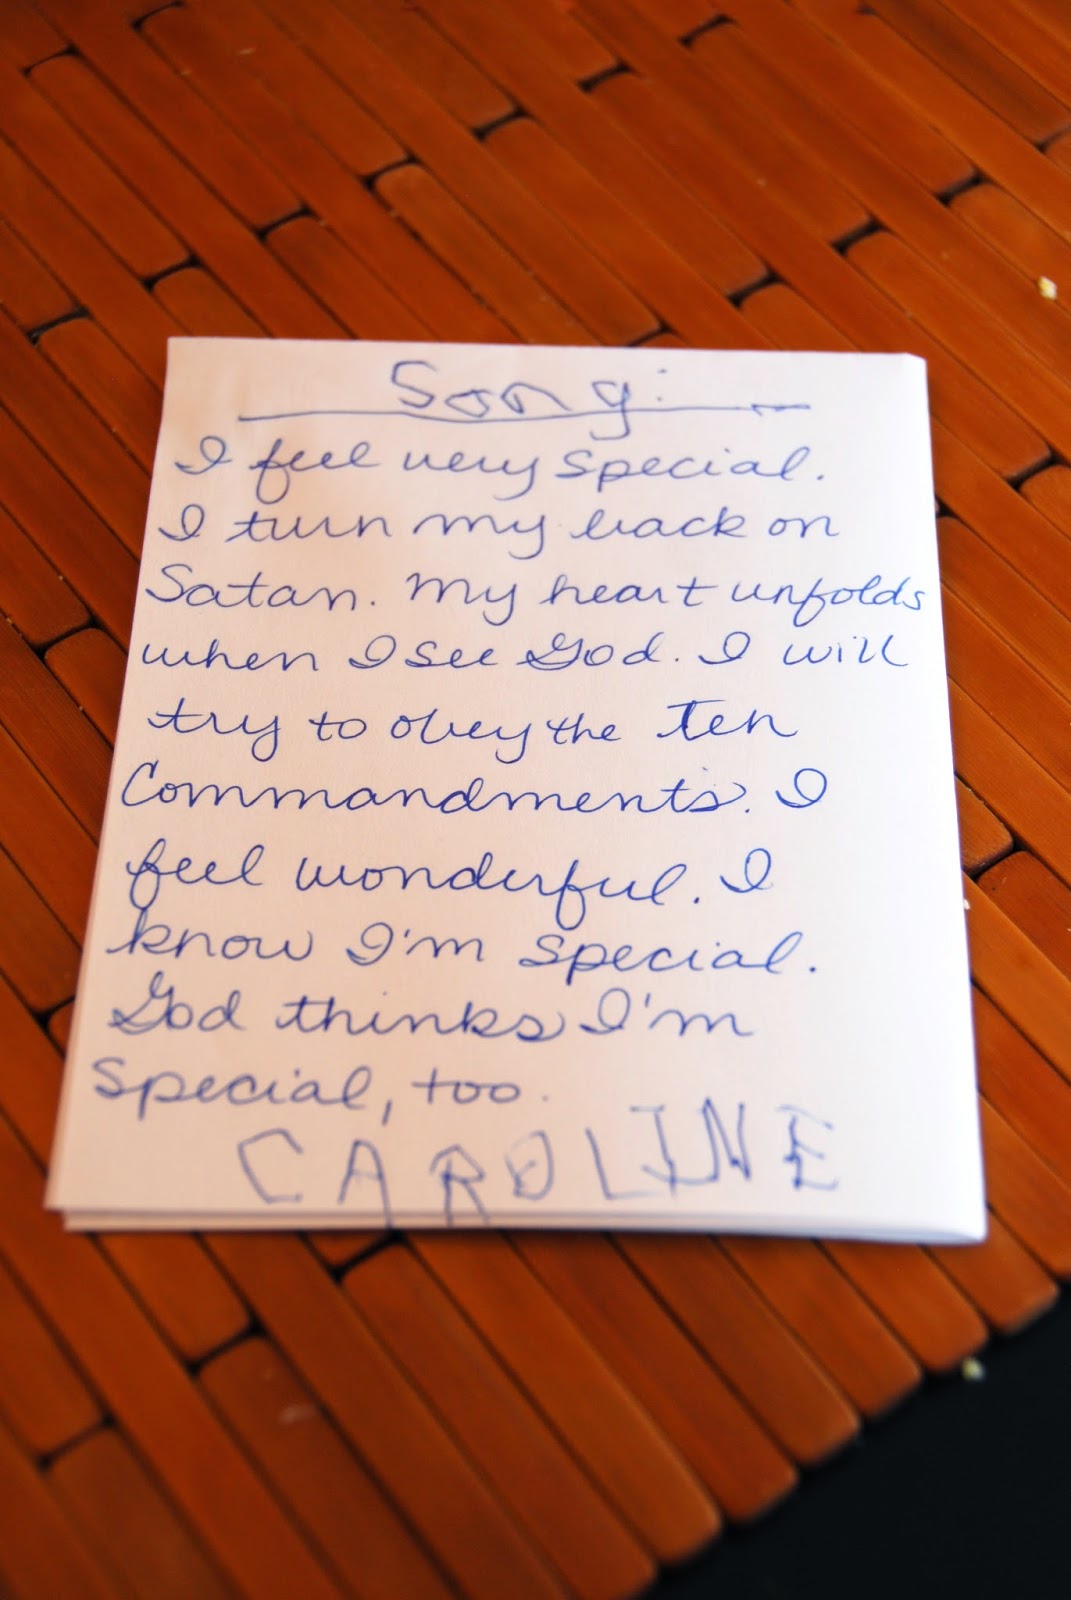 Song:
I feel very special.
I turn my back on
Satan. My heart unfolds
when I see God. I will
try to obey the Ten
Commandments. I
feel wonderful. I
know I'm special.
God thinks I'm
special, too.
CAROLINE